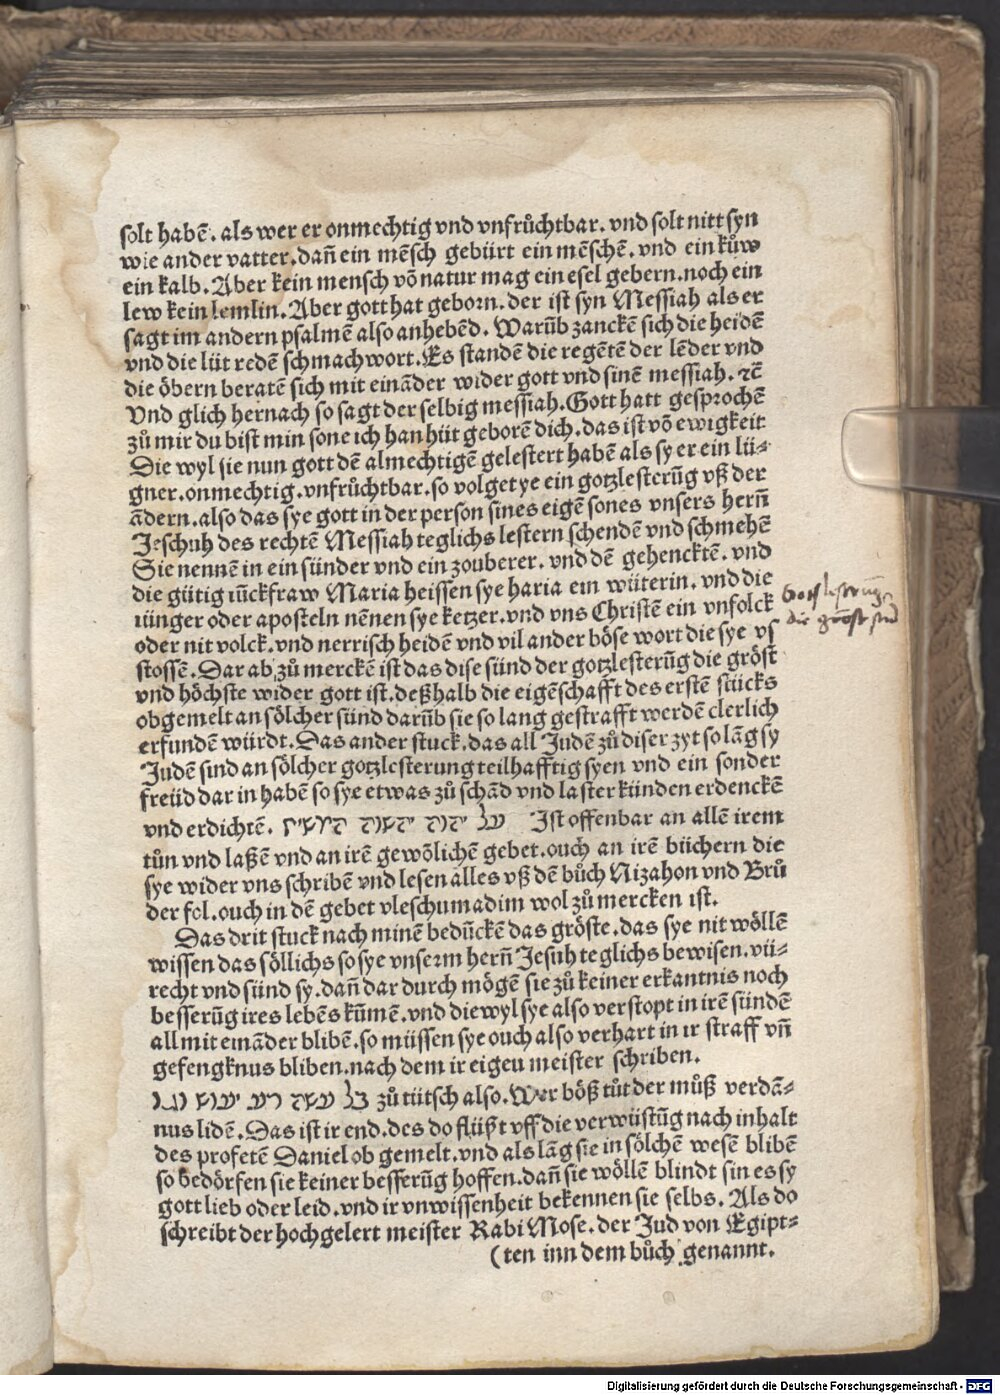 solt habē. als wer er onmechtig vnd vnfrůchtbar. vnd solt nitt syn
wie ander vatter. dañ ein mēsch gebürt ein mēschē. vnd ein kůw
ein kalb. Aber kein mensch vō natur mag ein esel gebern. noch ein
lew kein lemlin. Aber gott hat geborn. der ist syn Messiah als er
sagt im andern psalmē also anhebēd. Warūb zanckē sich die heidē
vnd die lüt redē schmachwort. Es standē die regētē der lēder vnd
die öbern beratē sich mit eināder wider gott vnd sinē messiah. ⁊c̄
Vnd glich hernach so sagt der selbig messiah. Gott hatt gesprochē
zů mir du bist min sone ich han hüt geborē dich. das ist vō ewigkeit
Die wyl sie nun gott dē almechtigē gelestert habē als sy er ein lü⸗
gner. onmechtig. vnfrůchtbar. so volget ye ein gotzlesterūg vß der
ādern. also das sye gott in der person sines eigē sones vnsers herñ
Jeschuh des rechtē Messiah teglichs lestern schendē vnd schmehē
Sie nennē in ein sünder vnd ein zouberer. vnd dē gehencktē. vnd
die gütig iūckfraw Maria heissen sye haria ein wüterin. vnd die
iünger oder aposteln nēnen sye ketzer. vnd vns Christē ein vnfolck
oder nit volck. vnd nerrisch heidē vnd vil ander böse wort die sye vs
stossē. Dar ab zů merckē ist das dise sünd der gotzlesterūg die gröst
vnd höchste wider gott ist. deßhalb die eigēschafft des erstē stücks
obgemelt an sölcher sünd darūb sie so lang gestrafft werdē clerlich
erfundē würdt. Das ander stuck. das all Judē zů diser zyt so lāg sy
Judē sind an sölcher gotzlesterung teilhafftig syen vnd ein sonder
freüd dar in habē so sye etwas zů schād vnd laster künden erdenckē
vnd erdichtē. Ist offenbar an allē irem
tůn vnd laßē vnd an irē gewōlichē gebet. ouch an irē büchern die
sye wider vns schribē vnd lesen alles vß dē bůch Nizahon vnd Brů
der fol. ouch in dē gebet vleschumadim wol zů mercken ist.
Das drit stuck nach minē bedūckē das gröste. das sye nit wöllē
wissen das söllichs so sye vnserm herñ Jesuh teglichs bewisen. vn⸗
recht vnd sünd sy. dañ dar durch mögē sie zů keiner erkantnis noch
besserūg ires lebēs kūmē. vnd die wyl sye also verstopt in irē sündē
all mit eināder blibē. so müssen sye ouch also verhart in ir straff vñ
gefengknus bliben. nach dem ir eigeu meister schriben.
zů tütsch also. Wer böß tůt der můß verdā⸗
nus lidē. Das ist ir end. des do flüßt vff die verwüstūg nach inhalt
des profetē Daniel ob gemelt. vnd als lāg sie in sölchē wesē blibē
so bedörfen sie keiner besserūg hoffen. dañ sie wöllē blindt sin es sy
gott lieb oder leid. vnd ir vnwissenheit bekennen sie selbs. Als do
schreibt der hochgelert meister Rabi Mose. der Jud von Egipt⸗
(ten inn dem bůch genannt.
Digitalisierung gefördert durch die Deutsche Forschungsgemeinschaft - DFG